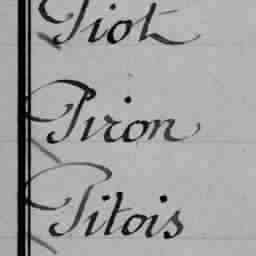 Piot
Piron
Pitois